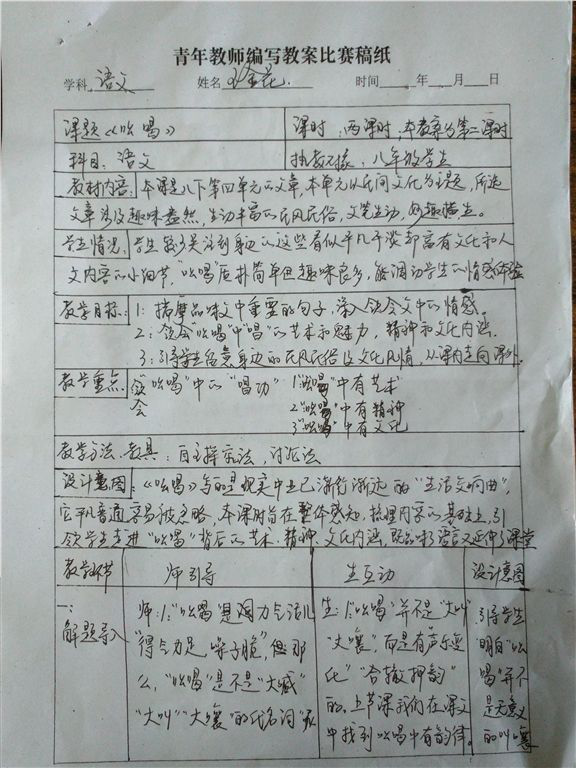 青年教师编写教案比赛稿纸
学科 语文 姓名 时间 年 月 日
课题《吆喝》 课时：两课时，本教案为第二课时
科目：语文 执教对象：八年级学生
教材内容：本课是八下第四单元的文章，本单元以民间文化为话题，所选
文章涉及趣味盎然，生动丰富的民风民俗，文笔生动，妙趣横生。
学生情况：学生较少关注到身边的这些看似平凡平淡却富有文化和人
文内容的小细节，"吆喝"质朴简单但趣味良多，能调动学生的情感体验
教学目标：1：揣摩品味文中重要的句子，深入领会文中的情感。
2：领会"吆喝"中"唱"的艺术和魅力，精神和文化内涵。
3：引导学生留意身边的民风民俗及文化风情，从课内走向课外。
教学重点：领会"吆喝"中的"唱功" 1"吆喝"中有艺术
2"吆喝"中有精神
3"吆喝"中有文化
教学方法、教具：自主探究法，讨论法
设计意图：《吆喝》写的是现实中已渐行渐远的"生活交响曲"，
它平凡普通容易被忽略，本课时旨在整体感知，梳理内容的基础上，引
领学生走进"吆喝"背后的艺术、精神、文化内涵，既品味语言又延伸课堂
教学环节 师引导 生互动 设计意图
一、
解题导入
师：1："吆喝"是调力气活儿
"得气力足，嗓子脆"，但那
么，"吆喝"是不是"大喊"
"大叫""大嚷"的代名词
生：1："吆喝"并不是"大叫"
"大嚷"，而是有声乐变
化"合辙押韵"
的。上节课我们在课文
中找到吆喝中有韵律。
引导学生
明白"吆
喝"并不
是无意义
的叫嚷